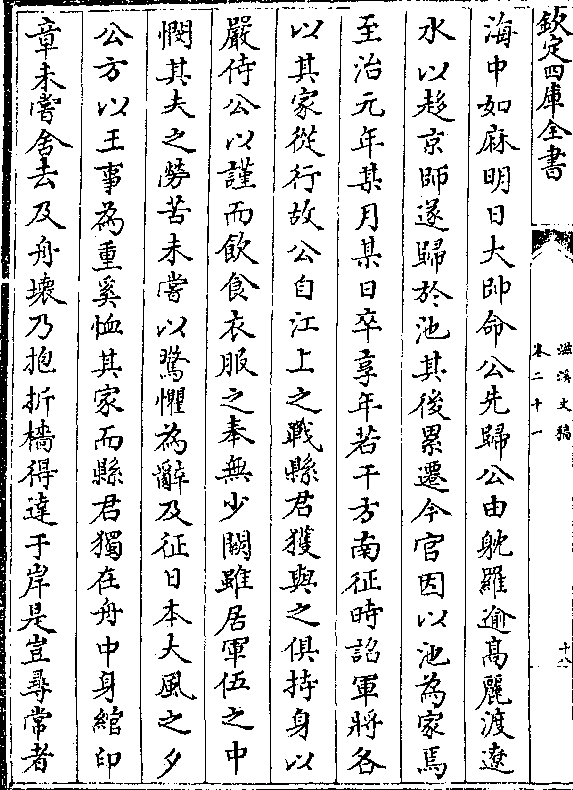 欽定四庫全書
滋溪文稿
卷二十一
十八
海中如麻明日大帥命公先歸公由躭羅逾髙麗渡遼
水以趍京師遂歸於池其後累遷今官因以池為家焉
至治元年某月某日卒享年若干方南征時詔軍將各
以其家從行故公自江上之戰縣君獲與之俱持身以
嚴侍公以謹而飲食衣服之奉無少闕雖居軍伍之中
憫其夫之勞苦未嘗以驚懼為辭及征日本大風之夕
公方以王事為重奚恤其家而縣君獨在舟中身綰印
章未嘗舍去及舟壞乃抱折檣得達于岸是豈尋常者